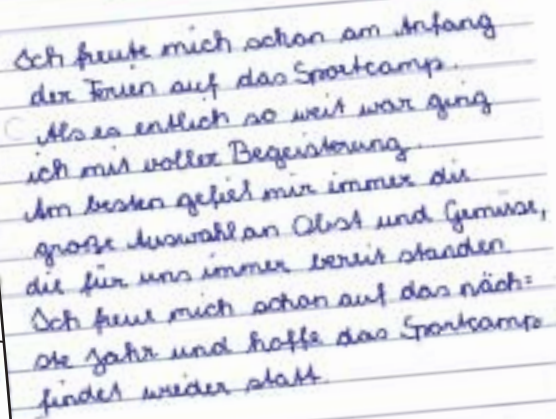 Ich freute mich schon am Anfang
der Ferien auf das Sportcamp.
Als es entlich so weit war ging
ich mit voller Begeisterung.
Am besten gefiel mir immer die
große Auswahl an Obst und Gemüse,
die für uns immer bereit standen.
Ich freue mich schon auf das näch=
ste Jahr und hoffe das Sportcamp
findet wieder statt.